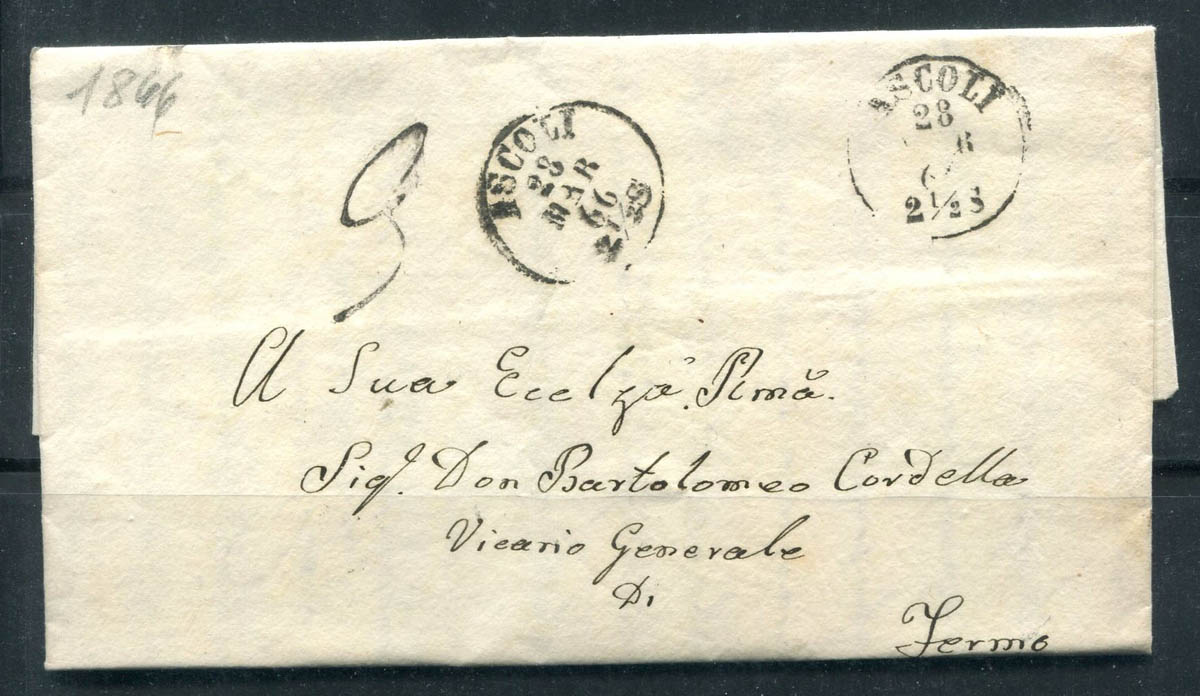 1866
ASCOLI
28
MAR
66
2 1/2 S
ASCOLI
28
R
6
2 1/2 S
A Sua Ecclzã. Rmã.
Sigr. Don Bartolomeo Cordella
Vicario Generale
Di
Fermo